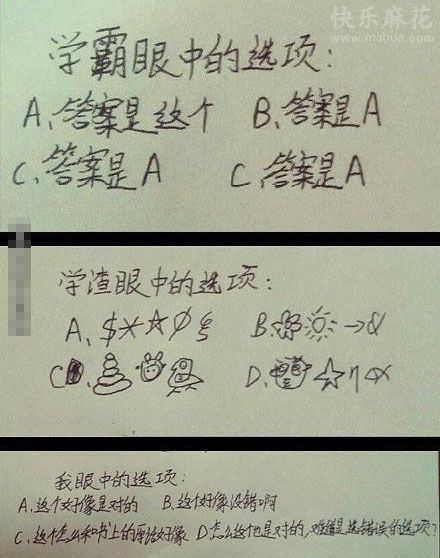 快乐麻花
www.mahua.com
学霸眼中的选项:
A、答案是这个 B、答案是A
C、答案是A C、答案是A
学渣眼中的选项:
A、$×☆∅ B、→&
C、 D、☆η
我眼中的选项:
A、这个好像是对的 B、这个好像没错啊
C、这个怎么和书上的原话好像 D、怎么这个也是对的,难道是选错误的选项?